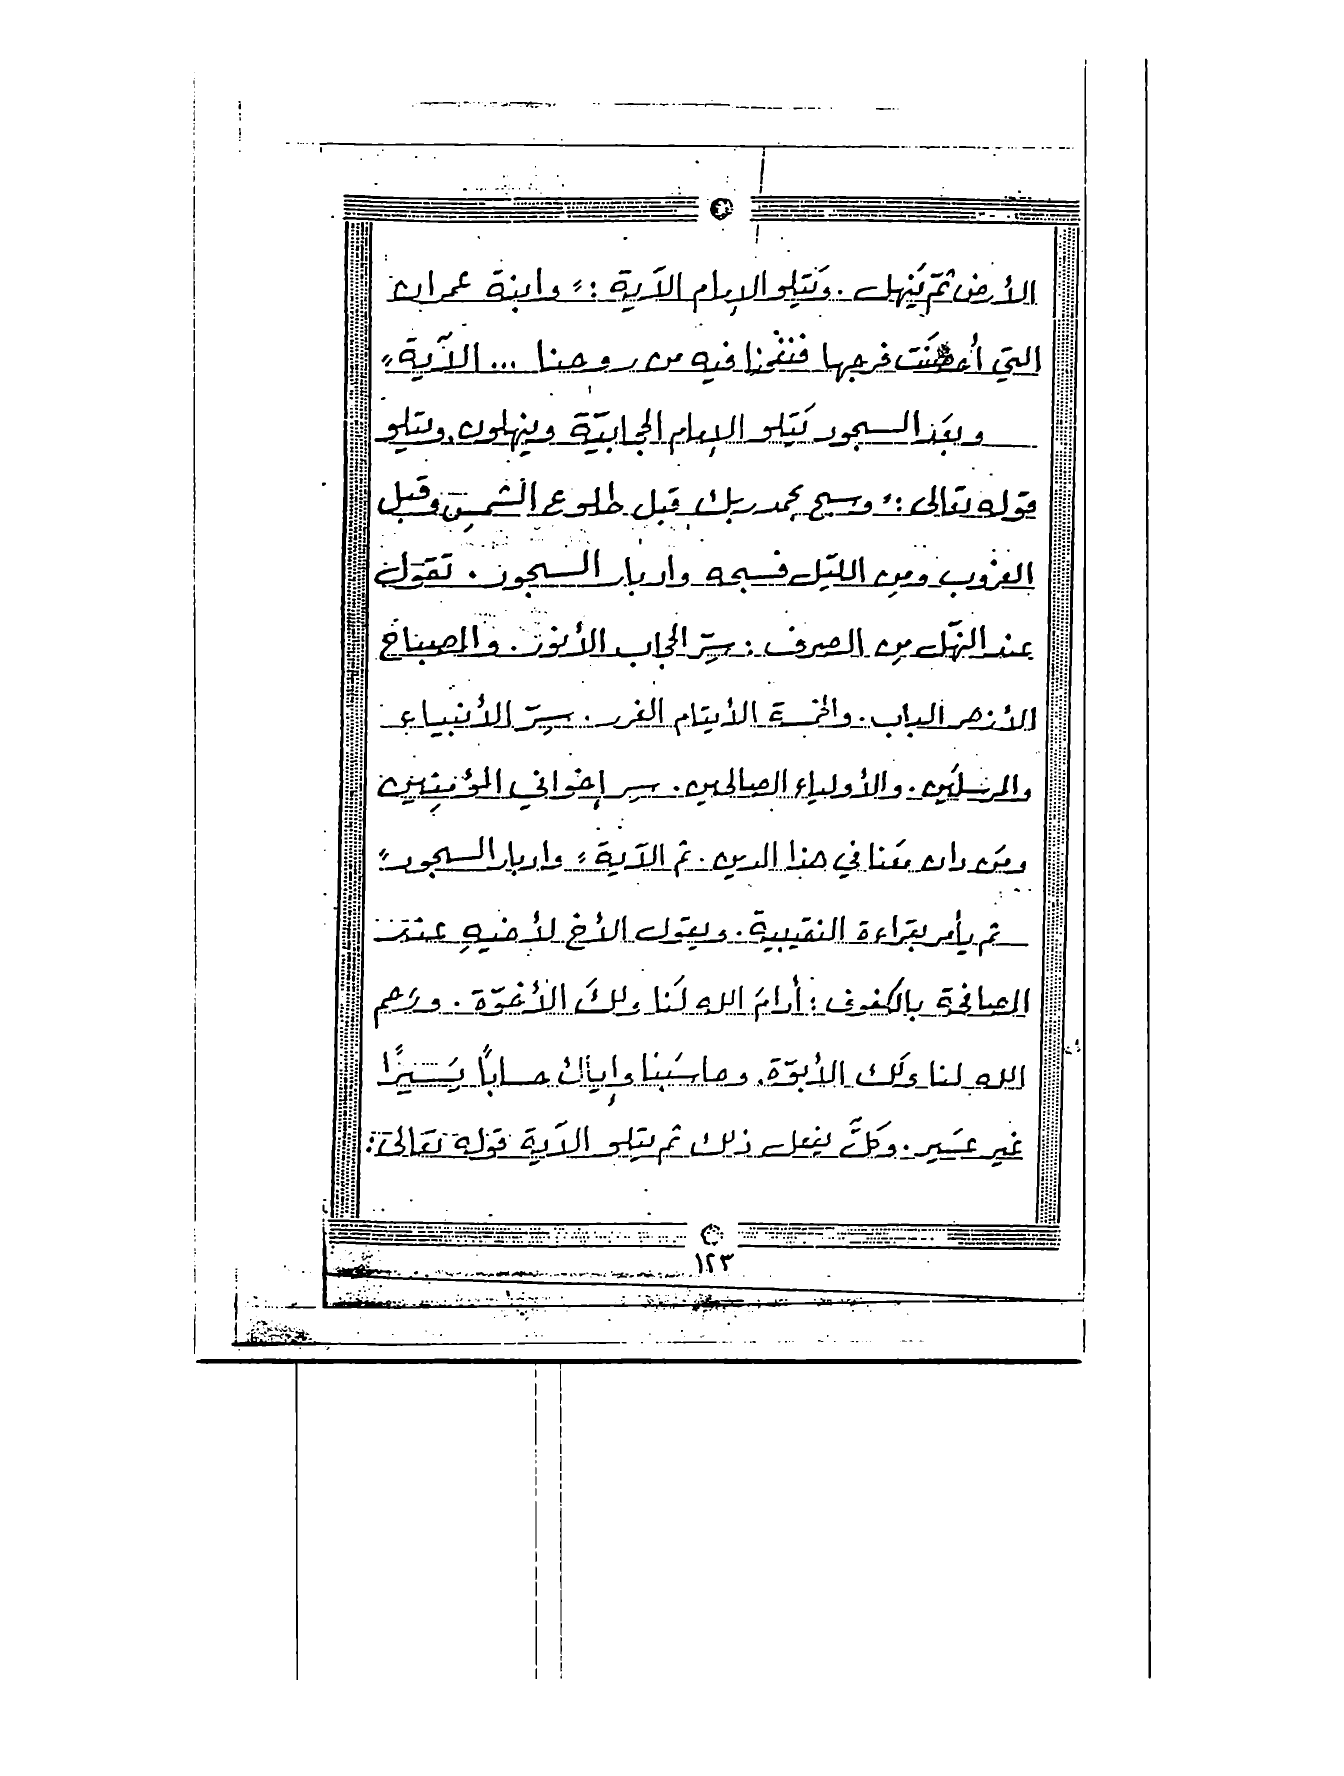 الأرض ثمّ يَنهل . ويَتلو الإمام الآية : " وابنة عمران
التي أحصَنَت فرجها فنفخنا فيه من روحنا ... الآية "
وبعَد السجود يَتلو الإمام الحجابيّة وينهلون . ويتلو
قوله تعالى : " وسبح بحمد ربك قبل طلوع الشمس وقبل
الغروب ومِن الليَل فسبحه وادبار السجود . تقول
عند النهَل مِن الصرف : سِرّ الحجاب الأنور . والمصباح
الأزهر الباب . والخمسة الأيتام الغرر . سِرّ الأنبياء
والمرسلَين . والأولياء الصالحين . سِر إخواني المؤمنِين
ومَن دان معَنا في هذا الدين . ثم الآية " وادبار السجود "
ثم يأمر بقراءة النقيبية . ويقول الأخ لأخيهِ عند
المصافحة بالكفوف : أدامَ الله لَنا ولكَ الأخوّة . ورَحم
الله لنا ولَك الأبوّة . وحاسَبنا وإياك حساباً يَسيرًا
غير عسَير . وكَلَّ يفعل ذلك ثم يتلو الآية قوله تعالى :
١٢٣